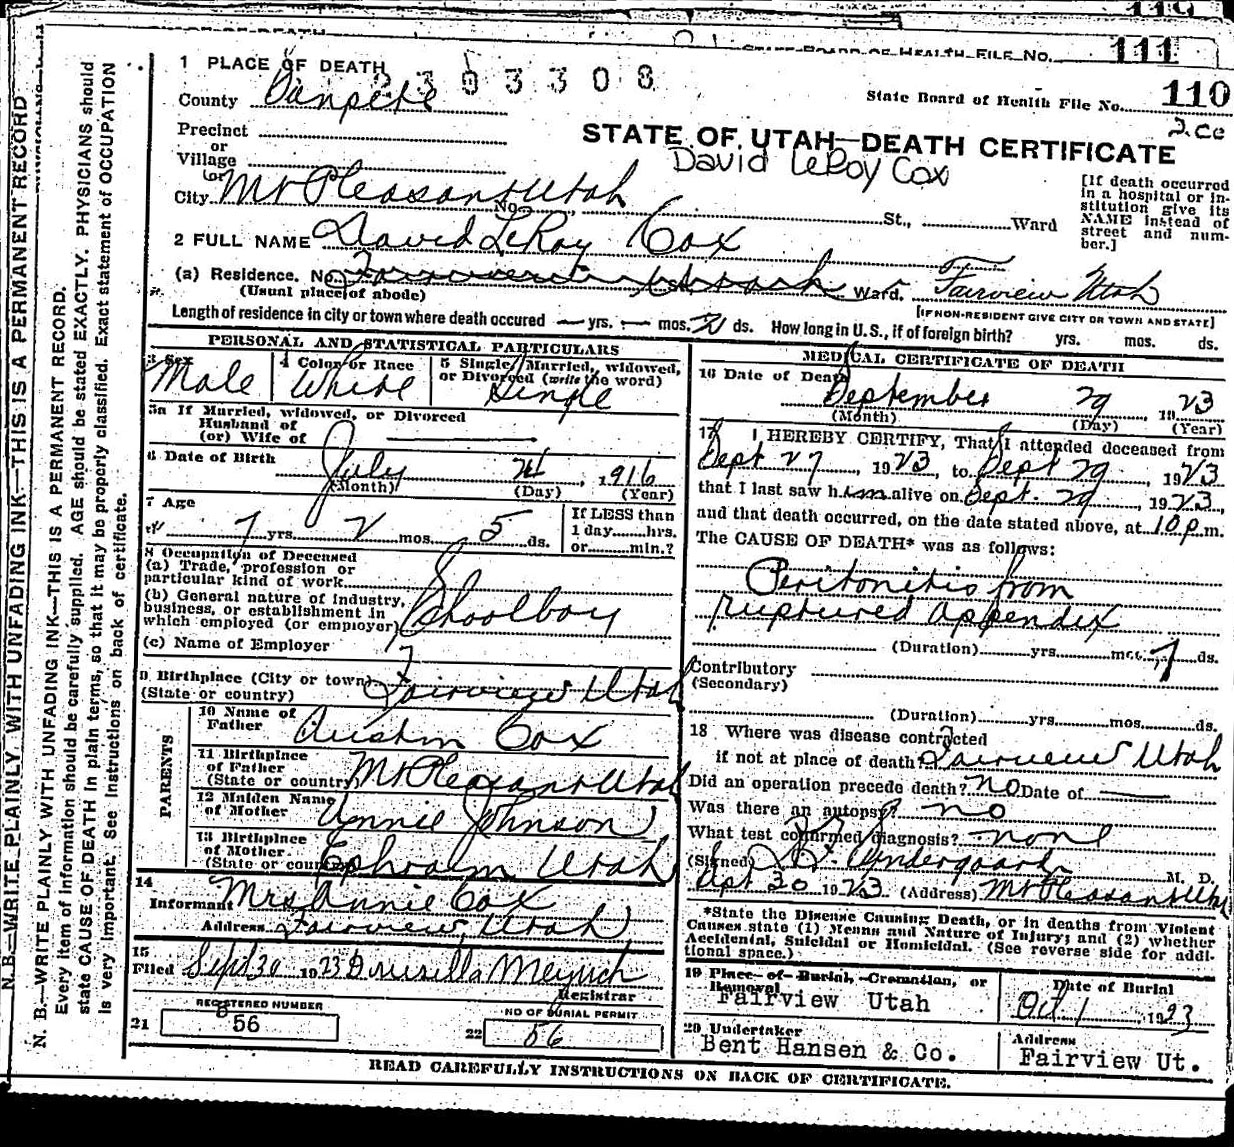 119
STATE BOARD OF HEALTH FILE NO. 111
1 PLACE OF DEATH
2303308
County Sanpete
State Board of Health File No. 110
2.cc
Precinct
or
Village
(or
STATE OF UTAH—DEATH CERTIFICATE
David LeRoy Cox
City Mt Pleasant Utah No. St., Ward
[If death occurred in a hospital or institution give its NAME instead of street and number.]
2 FULL NAME David LeRoy Cox
(a) Residence. No. Fairview Utah St. Ward. Fairview Utah
(Usual place of abode)
[IF NON-RESIDENT GIVE CITY OR TOWN AND STATE]
Length of residence in city or town where death occured — yrs. — mos. 2 ds. How long in U.S., if of foreign birth? yrs. mos. ds.
PERSONAL AND STATISTICAL PARTICULARS
3 Sex Male
4 Color or Race White
5 Single, Married, widowed, or Divorced (write the word) Single
5a If Married, widowed, or Divorced
Husband of
(or) Wife of
6 Date of Birth July 24, 1916
(Month) (Day) (Year)
7 Age
7 yrs. 2 mos. 5 ds.
If LESS than
1 day......hrs.
or......min.?
8 Occupation of Deceased
(a) Trade, profession or
particular kind of work
(b) General nature of industry,
business, or establishment in
which employed (or employer) Schoolboy
(c) Name of Employer
9 Birthplace (City or town) Fairview Utah
(State or country)
PARENTS
10 Name of
Father Austin Cox
11 Birthplace
of Father
(State or country) Mt Pleasant Utah
12 Maiden Name
of Mother Annie Johnson
13 Birthplace
of Mother.
(State or country) Ephraim Utah
14
Informant Mrs Annie Cox
Address Fairview, Utah
15
Filed Sept 30 1923 Drusilla
Registrar
REGISTERED NUMBER
21 B 56
NO OF BURIAL PERMIT
22 56
MEDICAL CERTIFICATE OF DEATH
16 Date of Death
September 29, 1923
(Month) (Day) (Year)
17 I HEREBY CERTIFY, That I attended deceased from
Sept 27, 1923, to Sept 29, 1923,
that I last saw him alive on Sept. 29, 1923,
and that death occurred, on the date stated above, at 10 p m.
The CAUSE OF DEATH* was as follows:
Peritonitis from
ruptured appendix
(Duration) yrs. mos. 7 ds.
Contributory
(Secondary)
(Duration) yrs. mos. ds.
18 Where was disease contracted
if not at place of death? Fairview Utah
Did an operation precede death? no Date of —
Was there an autopsy? no
What test confirmed diagnosis? none
(Signed) M. D.
30 1923 (Address) Mt Pleasant Utah
*State the Disease Causing Death, or in deaths from Violent
Causes state (1) Means and Nature of Injury; and (2) whether
Accidental, Suicidal or Homicidal. (See reverse side for additional space.)
19 Place of Burial, Cremation, or
Removal
Fairview Utah
Date of Burial
Oct 1 1923
20 Undertaker
Bent Hansen & Co.
Address
Fairview Ut.
READ CAREFULLY INSTRUCTIONS ON BACK OF CERTIFICATE.
N. B.—WRITE PLAINLY WITH UNFADING INK—THIS IS A PERMANENT RECORD
N. B.—WRITE PLAINLY WITH UNFADING INK—THIS IS A PERMANENT RECORD.
Every item of information should be carefully supplied. AGE should be stated EXACTLY. PHYSICIANS should
state CAUSE OF DEATH in plain terms, so that it may be properly classified. Exact statement of OCCUPATION
is very important. See instructions on back of certificate.